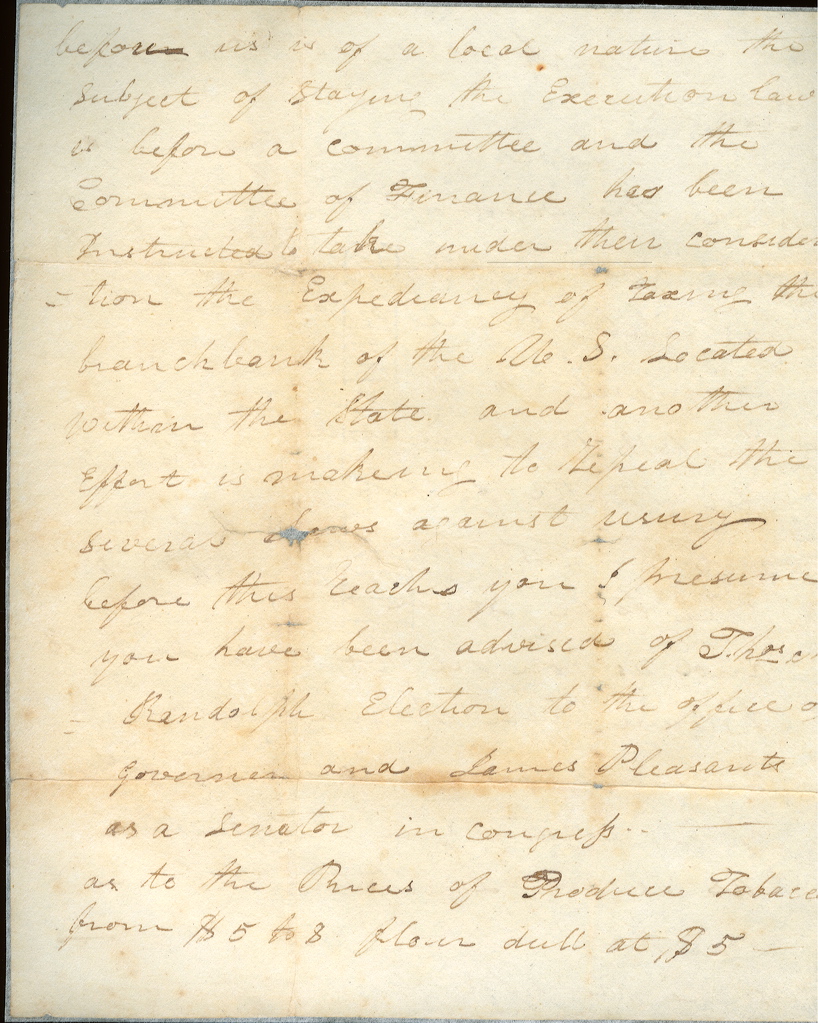 before us is of a local nature the
Subject of Staying the Execution law
is before a committee and the
Committee of Finance has been
Instructed to take under their consider
-tion the Expediancy of Taxing the
branchbank of the U. S. Located
within the State and another
Effort is makeing to Repeal the
several Laws against usury
before this Reachs you I presume
you have been advised of Thos
- Randolph Election to the office of
governer and James Pleasants
as a Senator in congress..
as to the Prices of Produce Tobacc
from $5 to 8 flour dull at $5 —